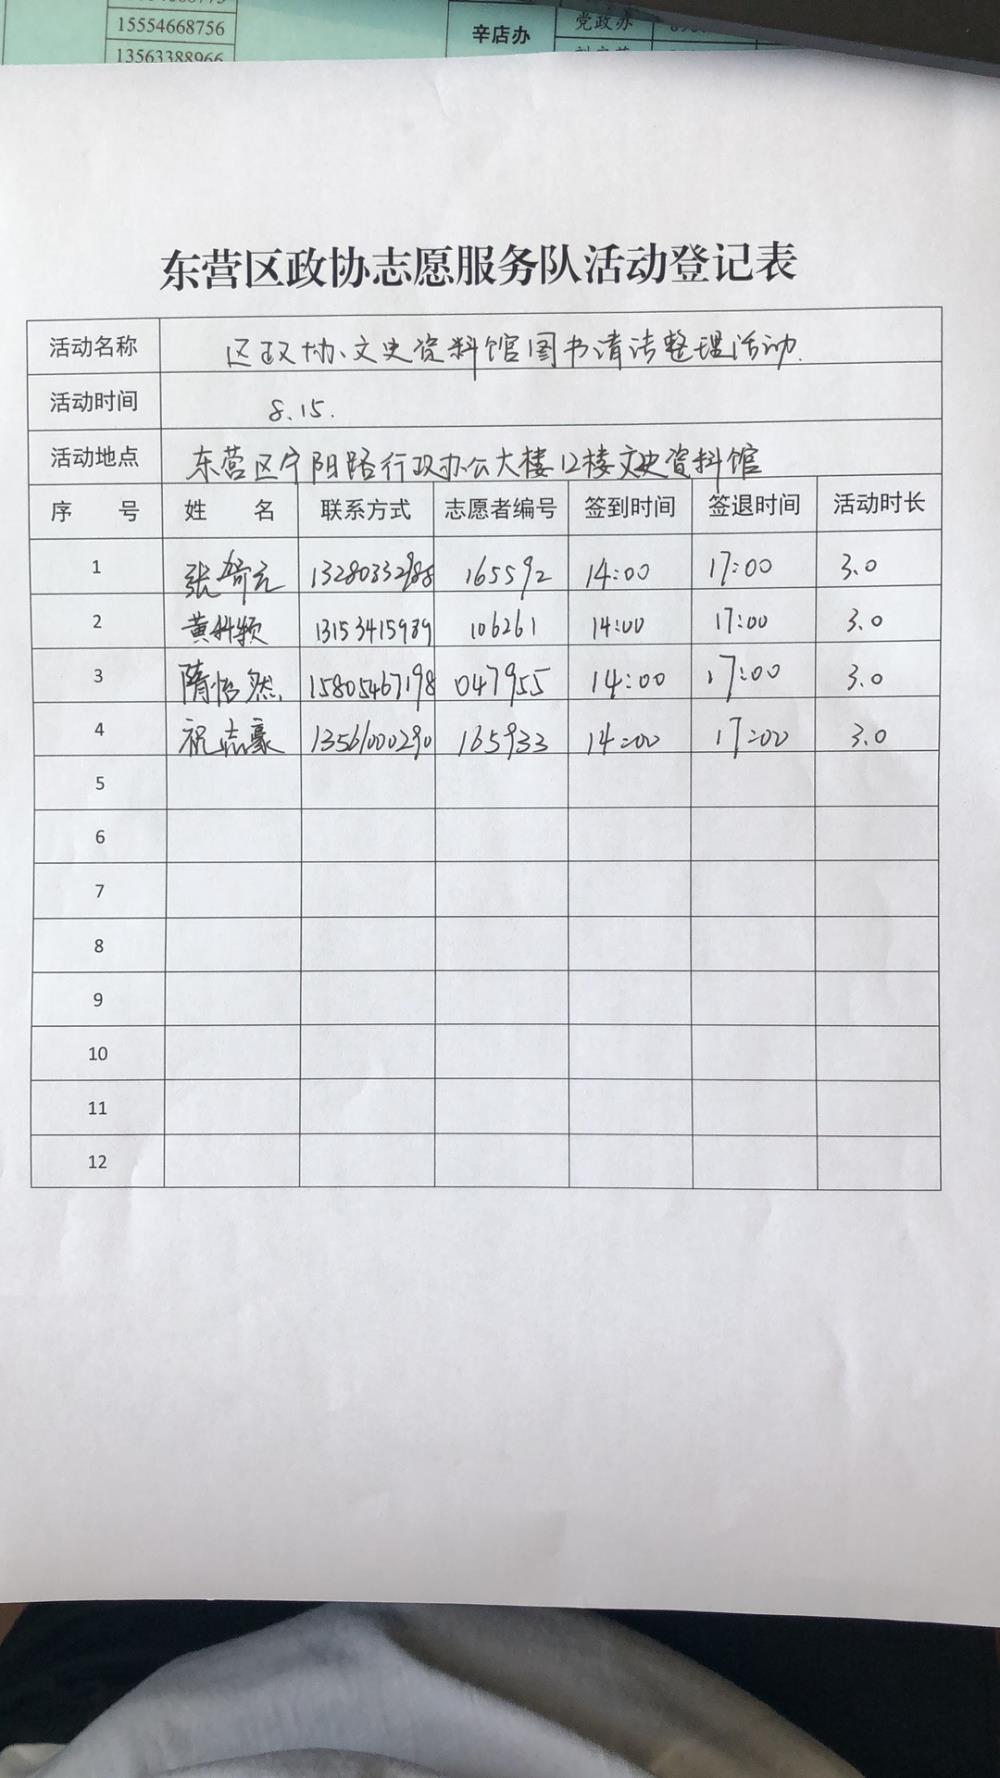 15554668756
13563388966
辛店办
党政办
东营区政协志愿服务队活动登记表
活动名称 区政协文史资料馆图书清洁整理活动.
活动时间 8.15.
活动地点 东营区宁阳路行政办公大楼12楼文史资料馆
序 号 姓 名 联系方式 志愿者编号 签到时间 签退时间 活动时长
1 张 13280332988 165592 14:00 17:00 3.0
2 黄科颖 13153415989 106261 14:00 17:00 3.0
3 隋怡然 15805467198 047955 14:00 17:00 3.0
4 祝志豪 13561000290 165933 14:00 17:00 3.0
5
6
7
8
9
10
11
12